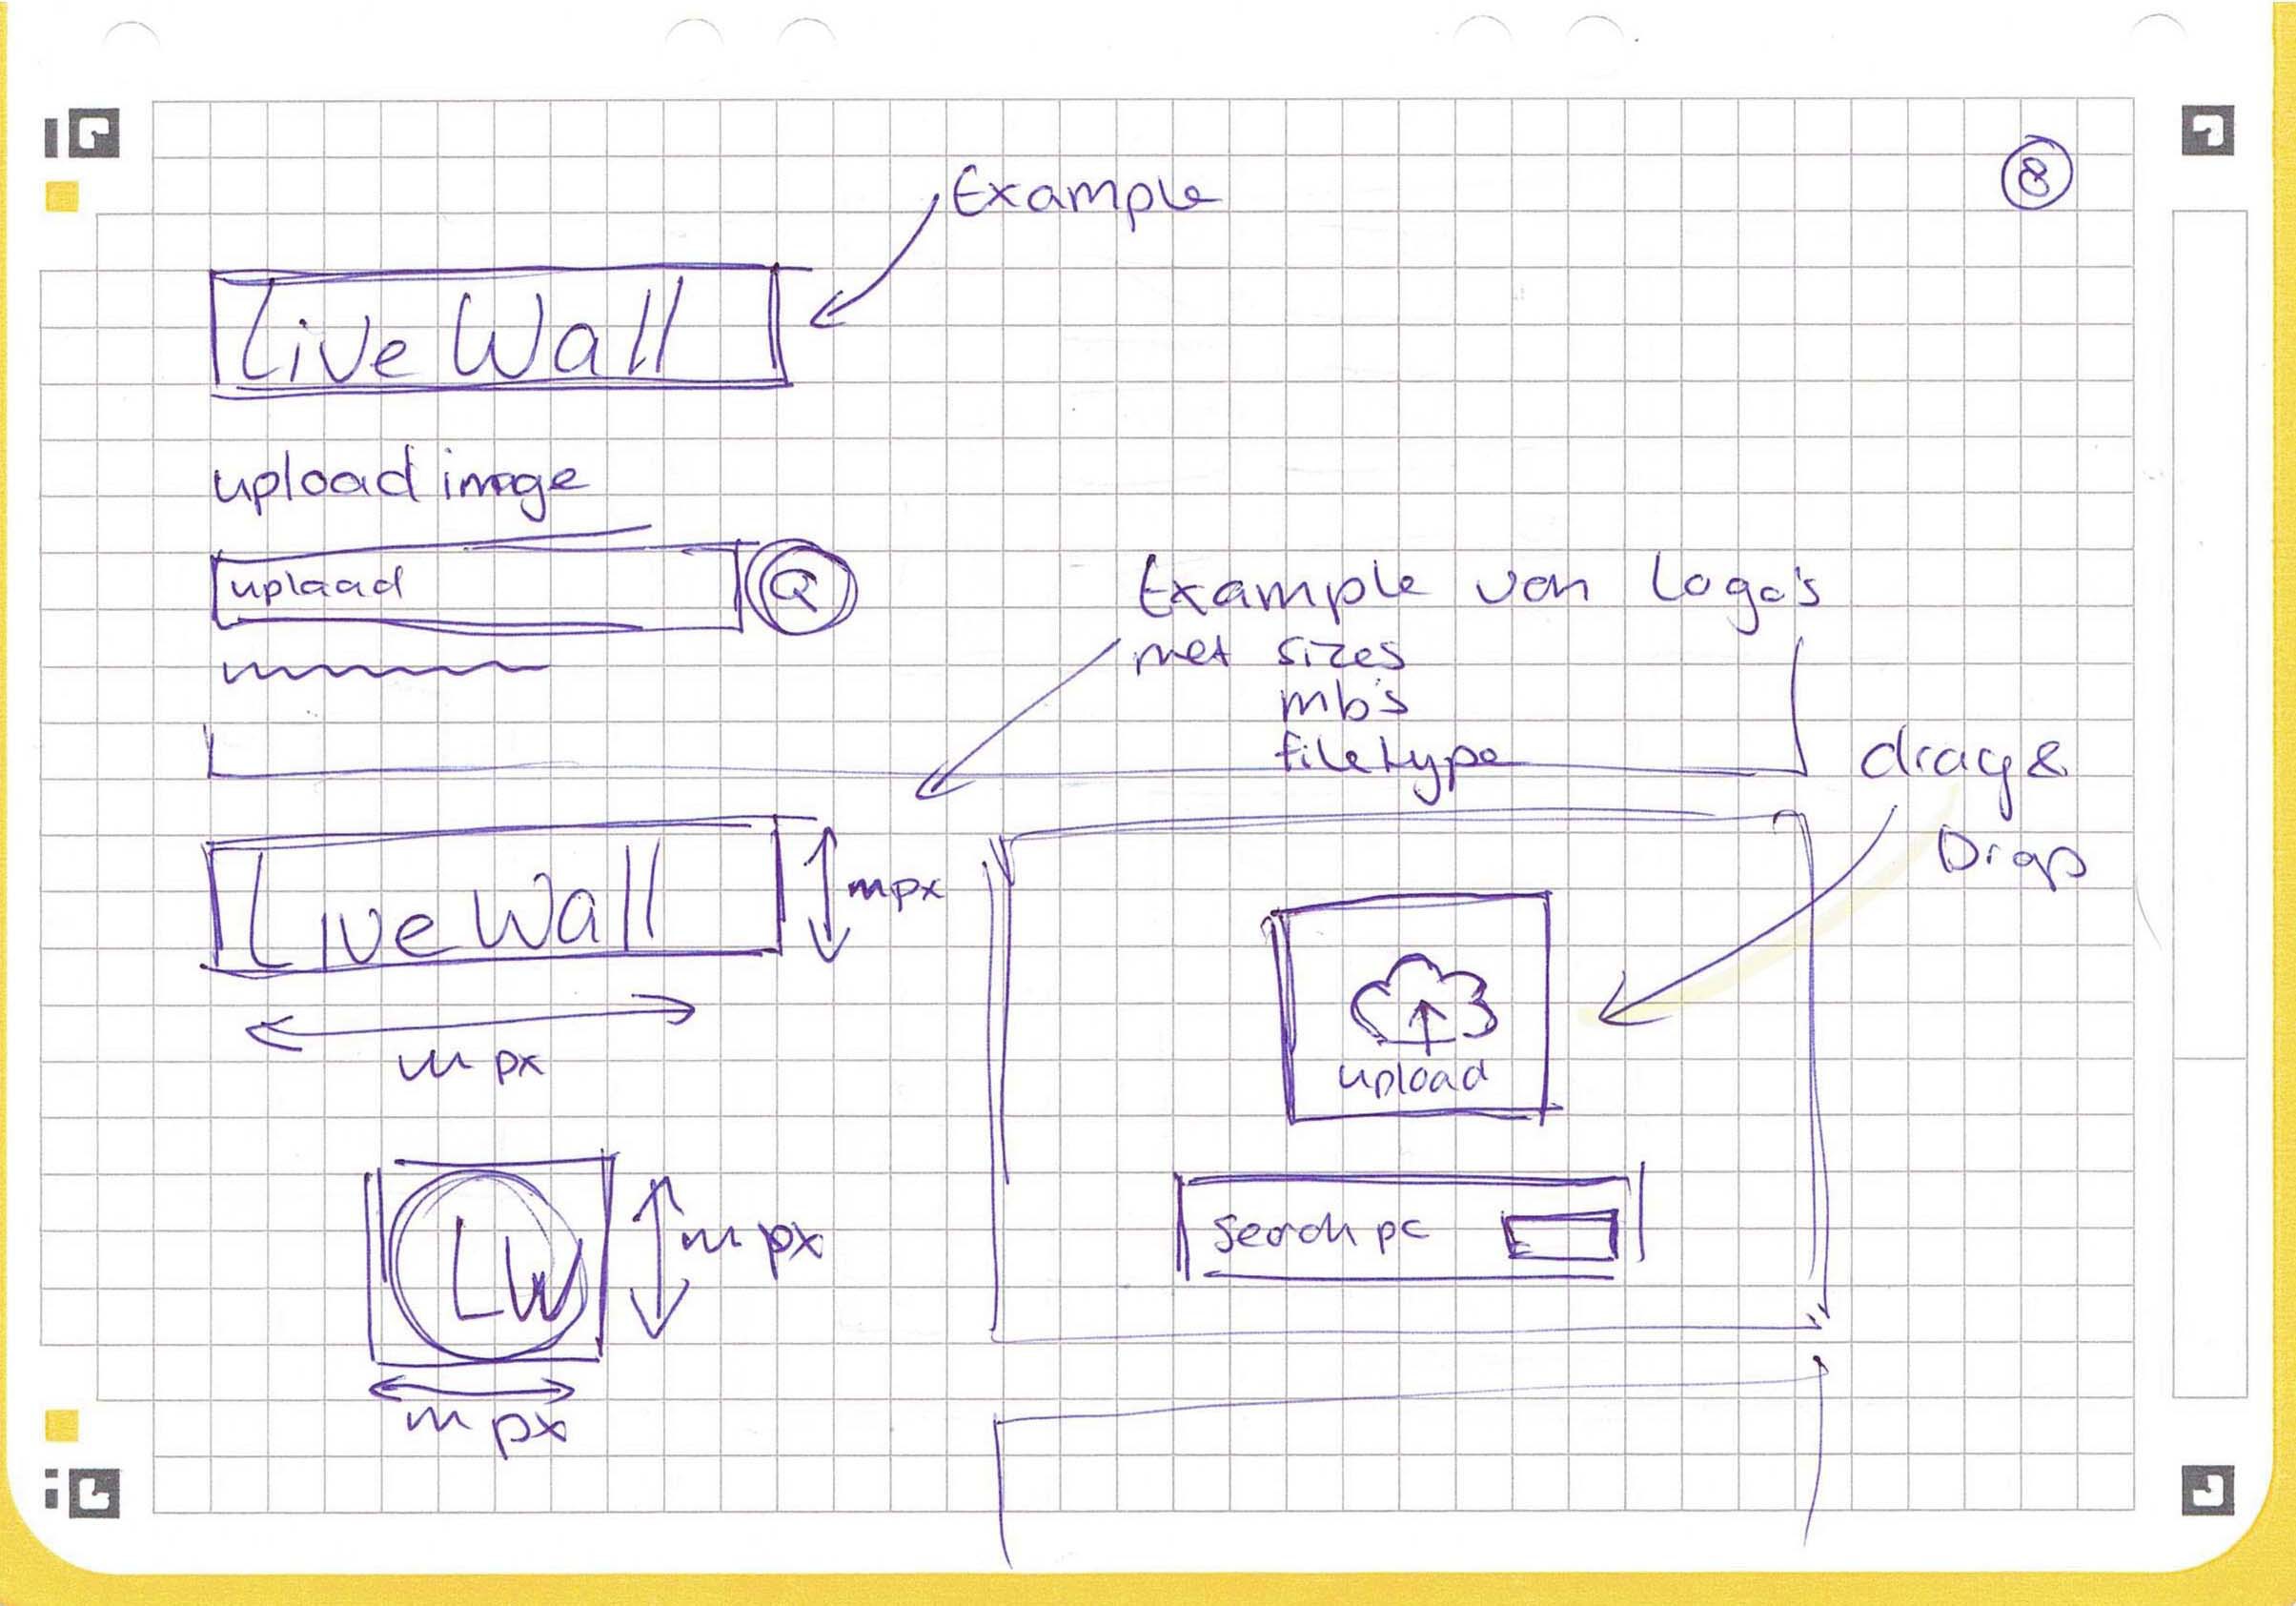 8
Example
Live Wall
upload image
uplaad
Example van Logo's
met sizes
mb's
filetype
drag &
Drop
Live Wall
px
px
upload
search pc
LW
px
px